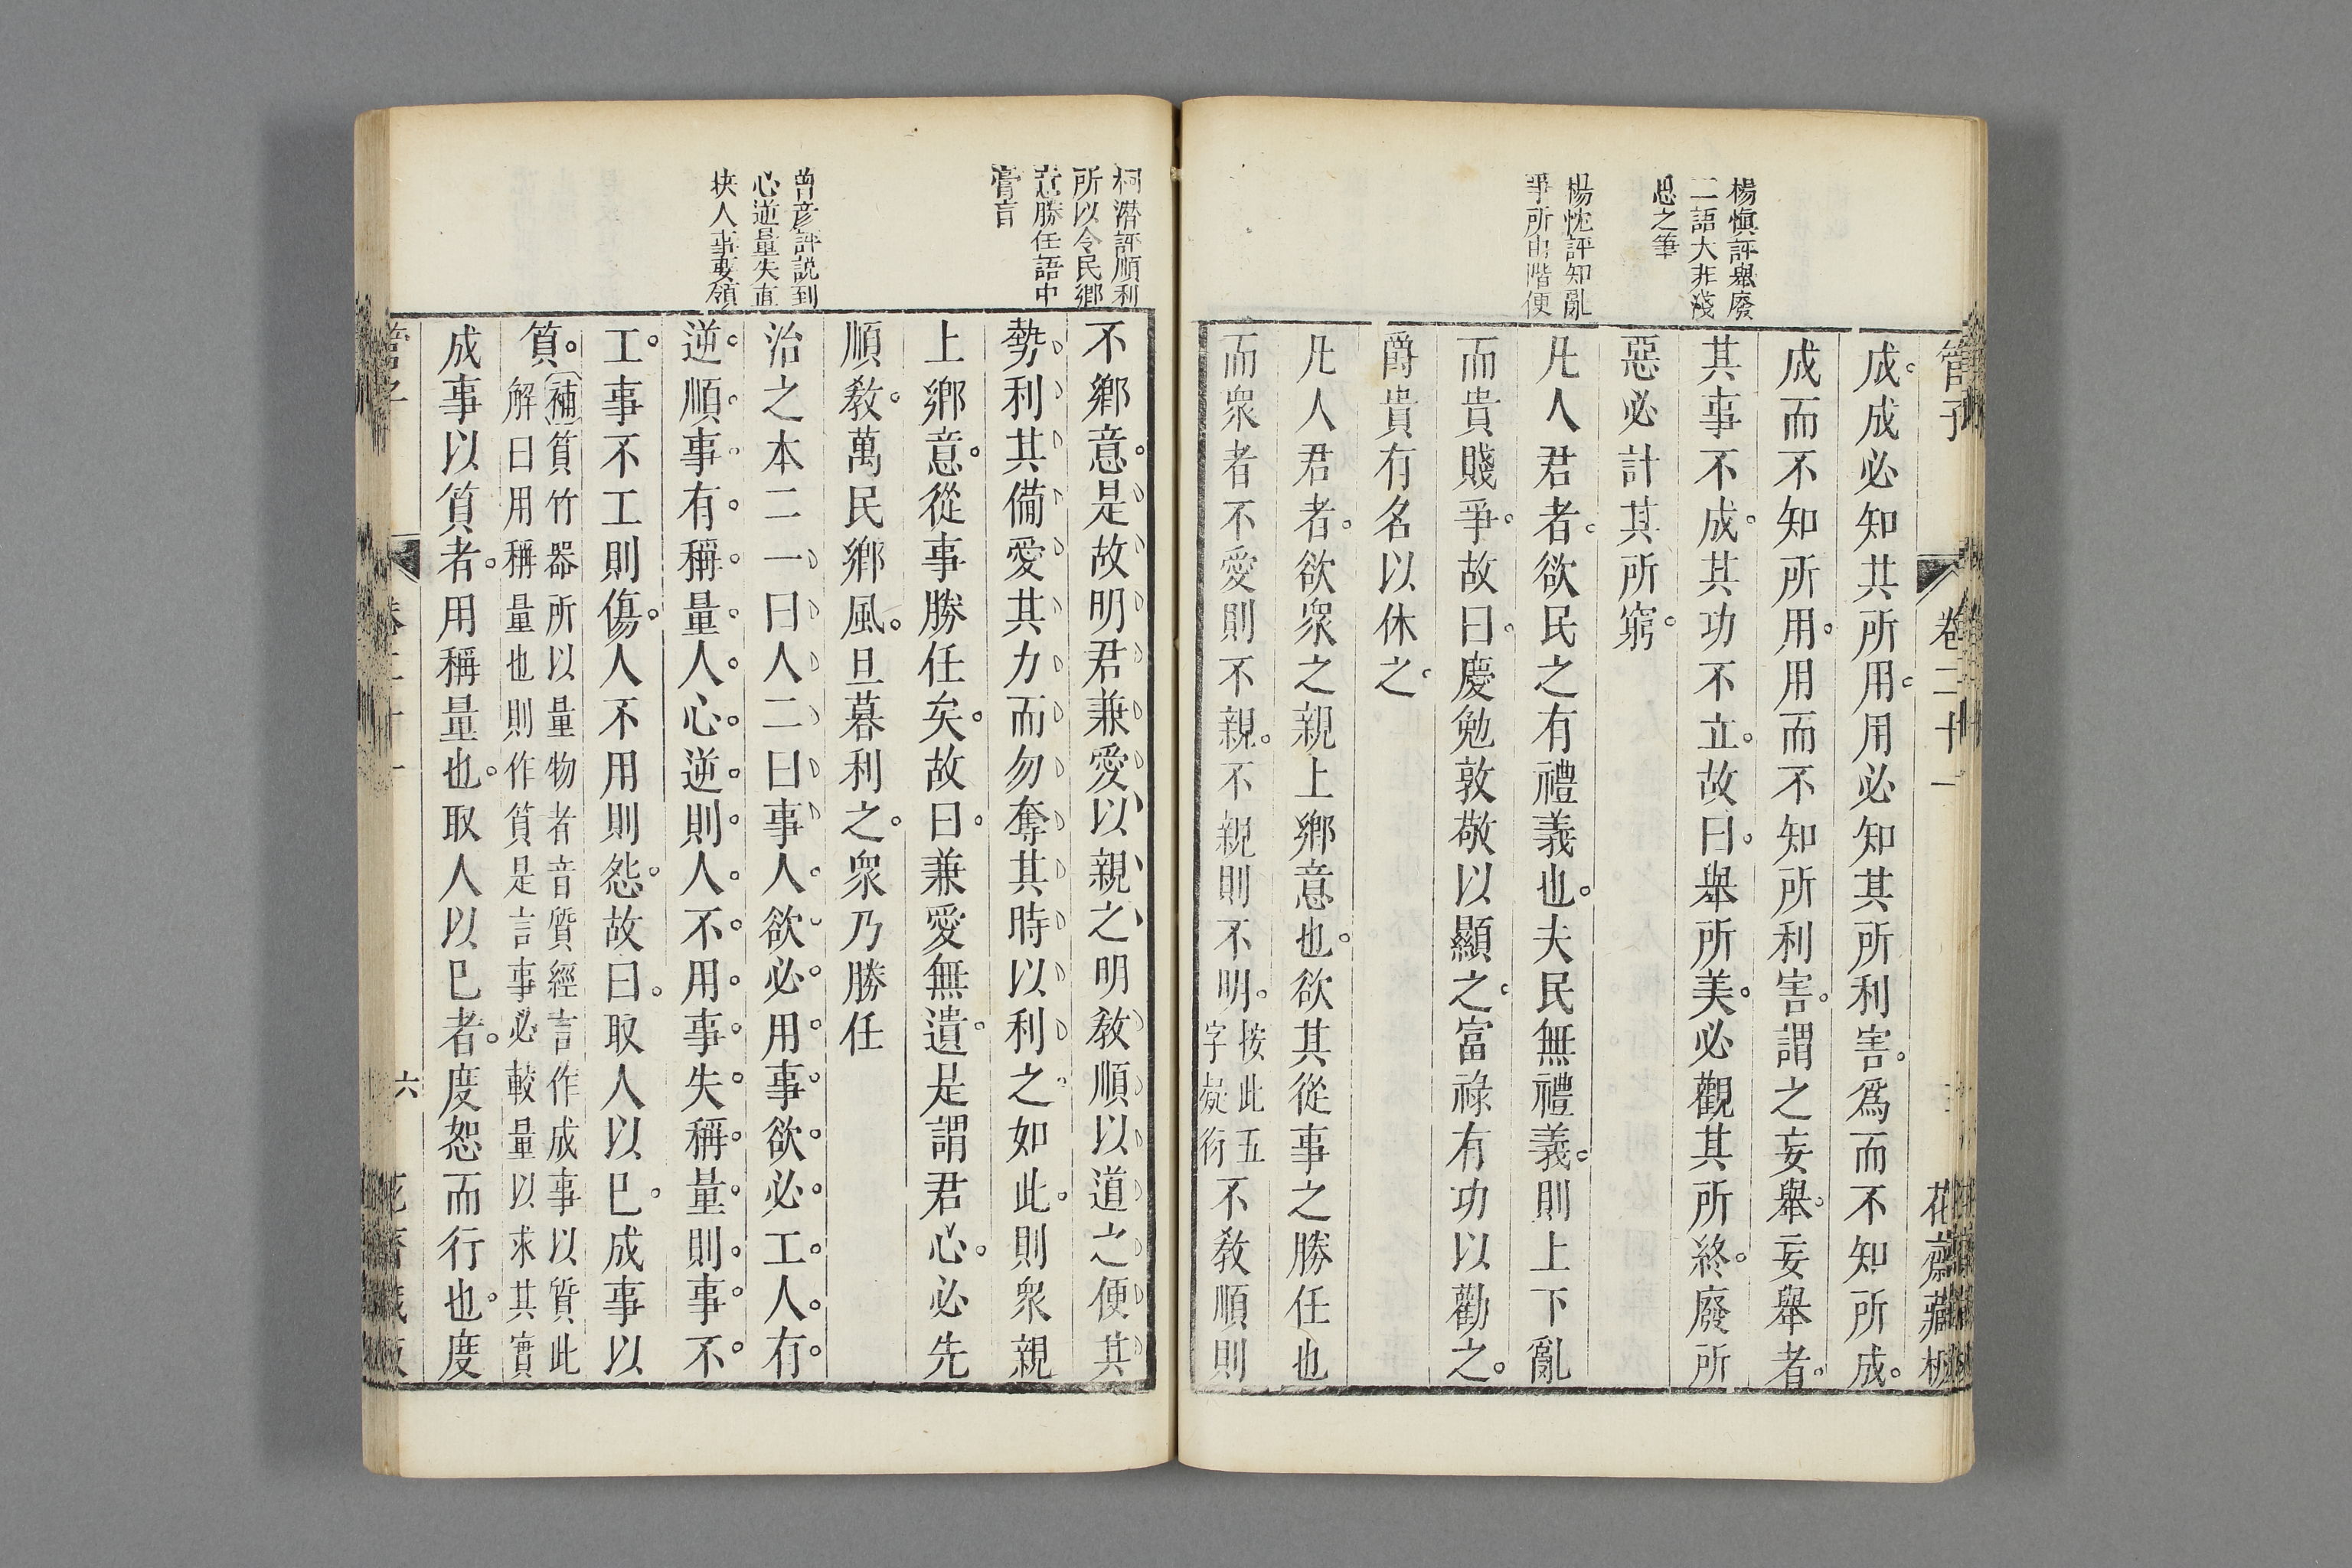 管子 卷二十一 花齋藏板
楊愼評舉廢
二語大非淺
思之筆
楊忱評知亂
爭所由階便
成。成必知其所用。用必知其所利害。爲而不知所成。
成而不知所用。用而不知所利害。謂之妄舉。妄舉者。
其事不成。其功不立。故曰。舉所美。必觀其所終。廢所
惡必計其所窮。
凡人君者。欲民之有禮義也。夫民無禮義。則上下亂
而貴賤爭。故曰。慶勉敦敬以顯之。富祿有功以勸之。
爵貴有名以休之。
凡人君者。欲衆之親上鄉意也。欲其從事之勝任也
而衆者不愛則不親。不親則不明。按此五
字疑衍不敎順則
柯潛評順利
所以令民鄉
意勝任語中
膏肓
曾彦評説到
心逆量失直
抉人事要領
不鄉意。是故明君兼愛以親之明敎順以道之便其
勢利其備愛其力而勿奪其時以利之。如此。則衆親
上鄉意。從事勝任矣。故曰。兼愛無遺。是謂君心。必先
順敎。萬民鄉風。旦暮利之。衆乃勝任
治之本二一曰人二曰事人。欲必用事。欲必工。人有
逆順。事有稱量。人心逆。則人不用。事失稱量。則事不
工。事不工則傷。人不用則怨。故曰。取人以己。成事以
質。補質竹器所以量物者音質經言作成事以質此
解曰用稱量也則作質是言事必較量以求其實
成事以質者。用稱量也。取人以己者。度恕而行也。度
管子 卷二十一 六 花齋藏板